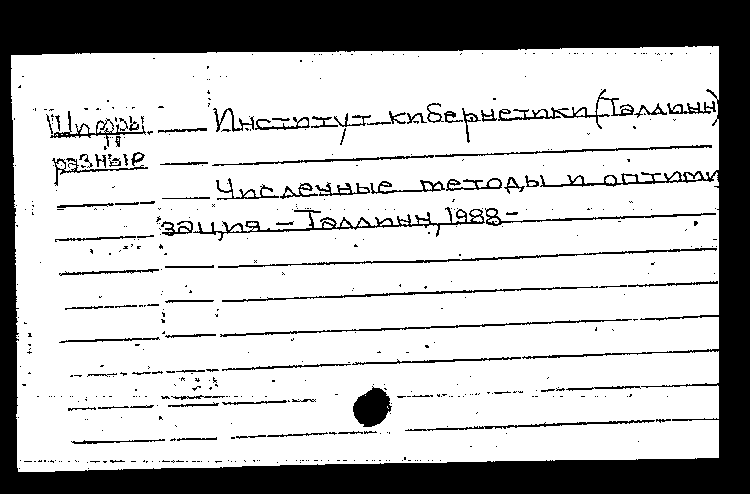 Шифры
разные
Институт кибернетики (Таллинн)
Численные методы и оптими
зация. – Таллинн, 1988 –